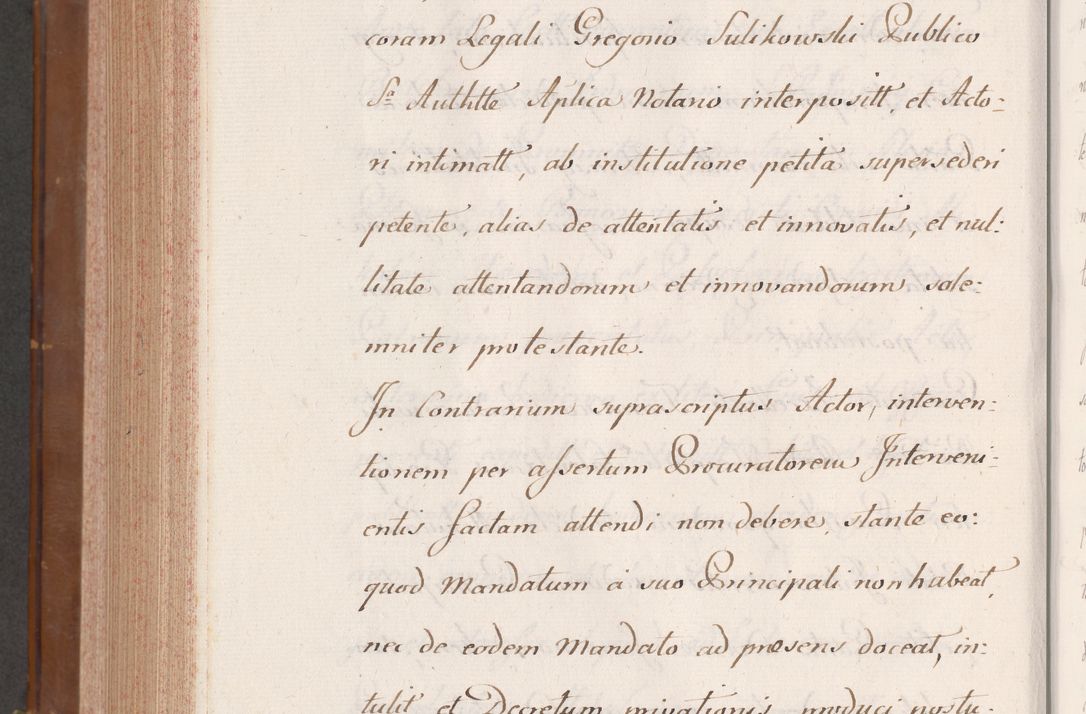 coram Legali Gregorio Sulikowski Publico
Sa Authtte Aplica Notario interpositt, et Acto=
ri intimatt, ab institutione petita supersederi
petente, alias de attentatis et innovatis, et nul:
litate attentandorum et innovandorum sole:
mniter protestante.
In Contrarium suprascriptus Actor, interven:
tionem per assertum Procuratorem Interveni=
entis factam attendi non debere, stante eo:
quod Mandatum à suo Principali non habeat,
nec de eodem Mandato ad præsens doceat, in:
tulit et Decretum privationis produci postu: